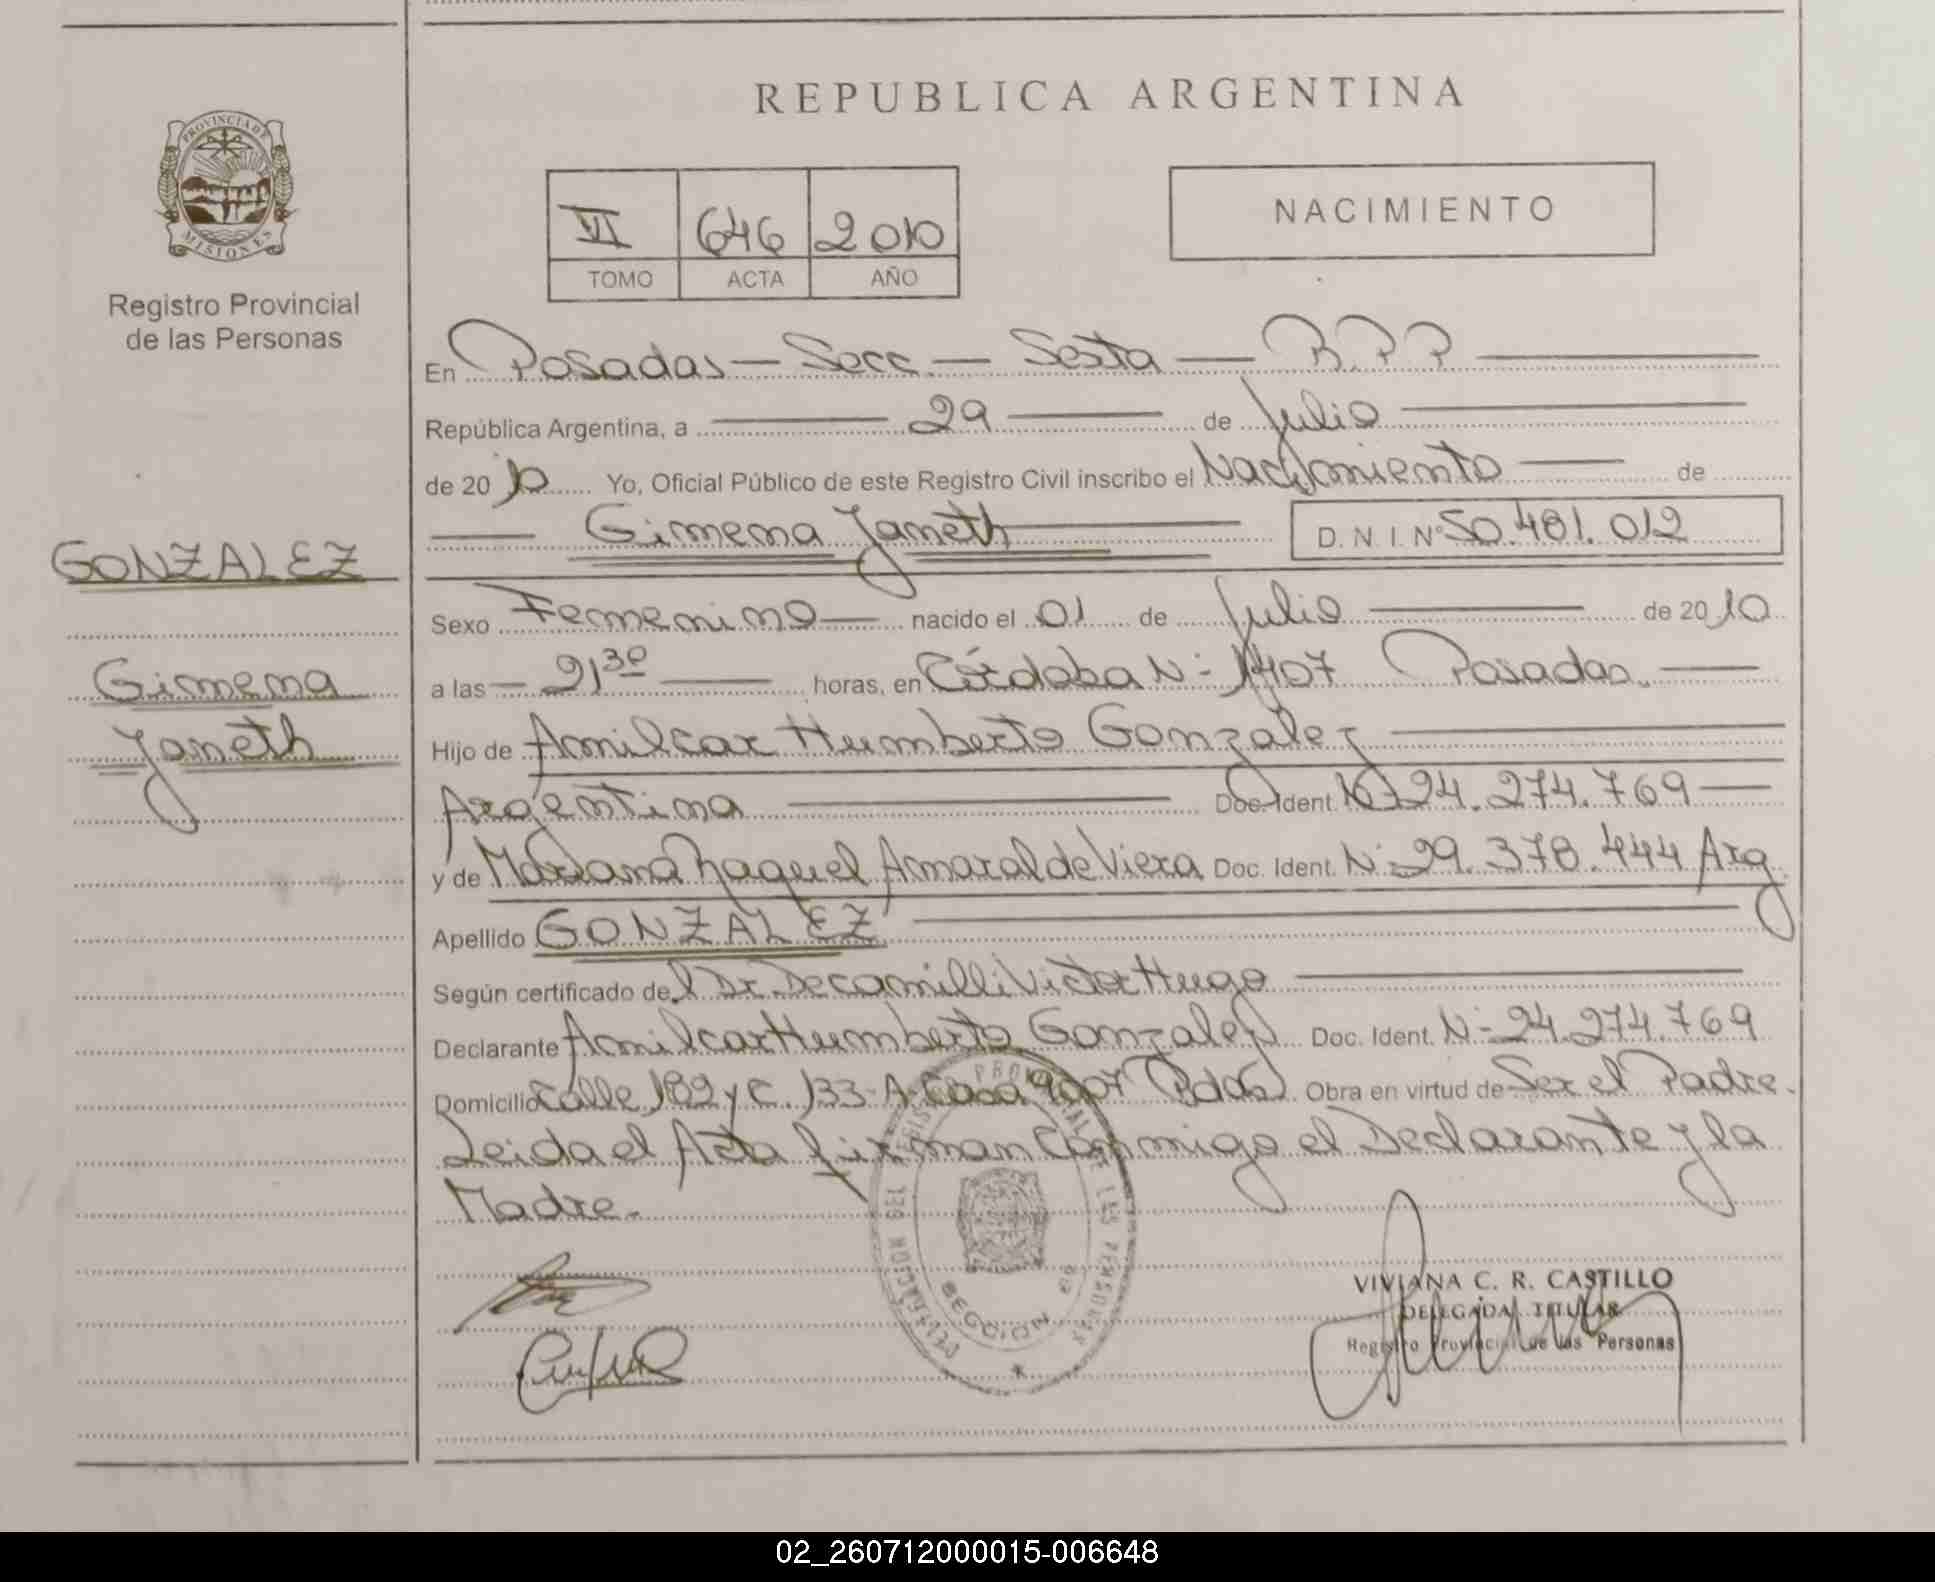 REPUBLICA ARGENTINA
PROVINCIA DE
MISIONES
Registro Provincial
de las Personas
VI 646 2010
TOMO ACTA AÑO
NACIMIENTO
En Posadas — Secc. — Sexta — R.P.P
República Argentina, a 29 de Julio
de 2010 Yo, Oficial Público de este Registro Civil inscribo el Nacimiento de
Gimena Janeth D.N.I. Nº 50.481.012
GONZALEZ
Gimena
Janeth
Sexo Femenino nacido el 01 de Julio de 2010
a las 21³⁰ horas, en Córdoba Nº 1407 Posadas.
Hijo de Amilcar Humberto Gonzalez
Argentina Doc. Ident. Nº 24.274.769
y de Mariana Raquel Amaral de Viera Doc. Ident. Nº 29.378.444 Arg
Apellido GONZALEZ
Según certificado del Dr. Decamilli Victor Hugo
Declarante Amilcar Humberto Gonzalez Doc. Ident. Nº 24.274.769
Domicilio Calle 189 y C. 133-A Casa 9007 Pdas Obra en virtud de Ser el Padre.
Leida el Acta firman conmigo el Declarante y la
Madre.
SECCION 6a
VIVIANA C. R. CASTILLO
DELEGADA TITULAR
Registro Provincial de las Personas
02_260712000015-006648